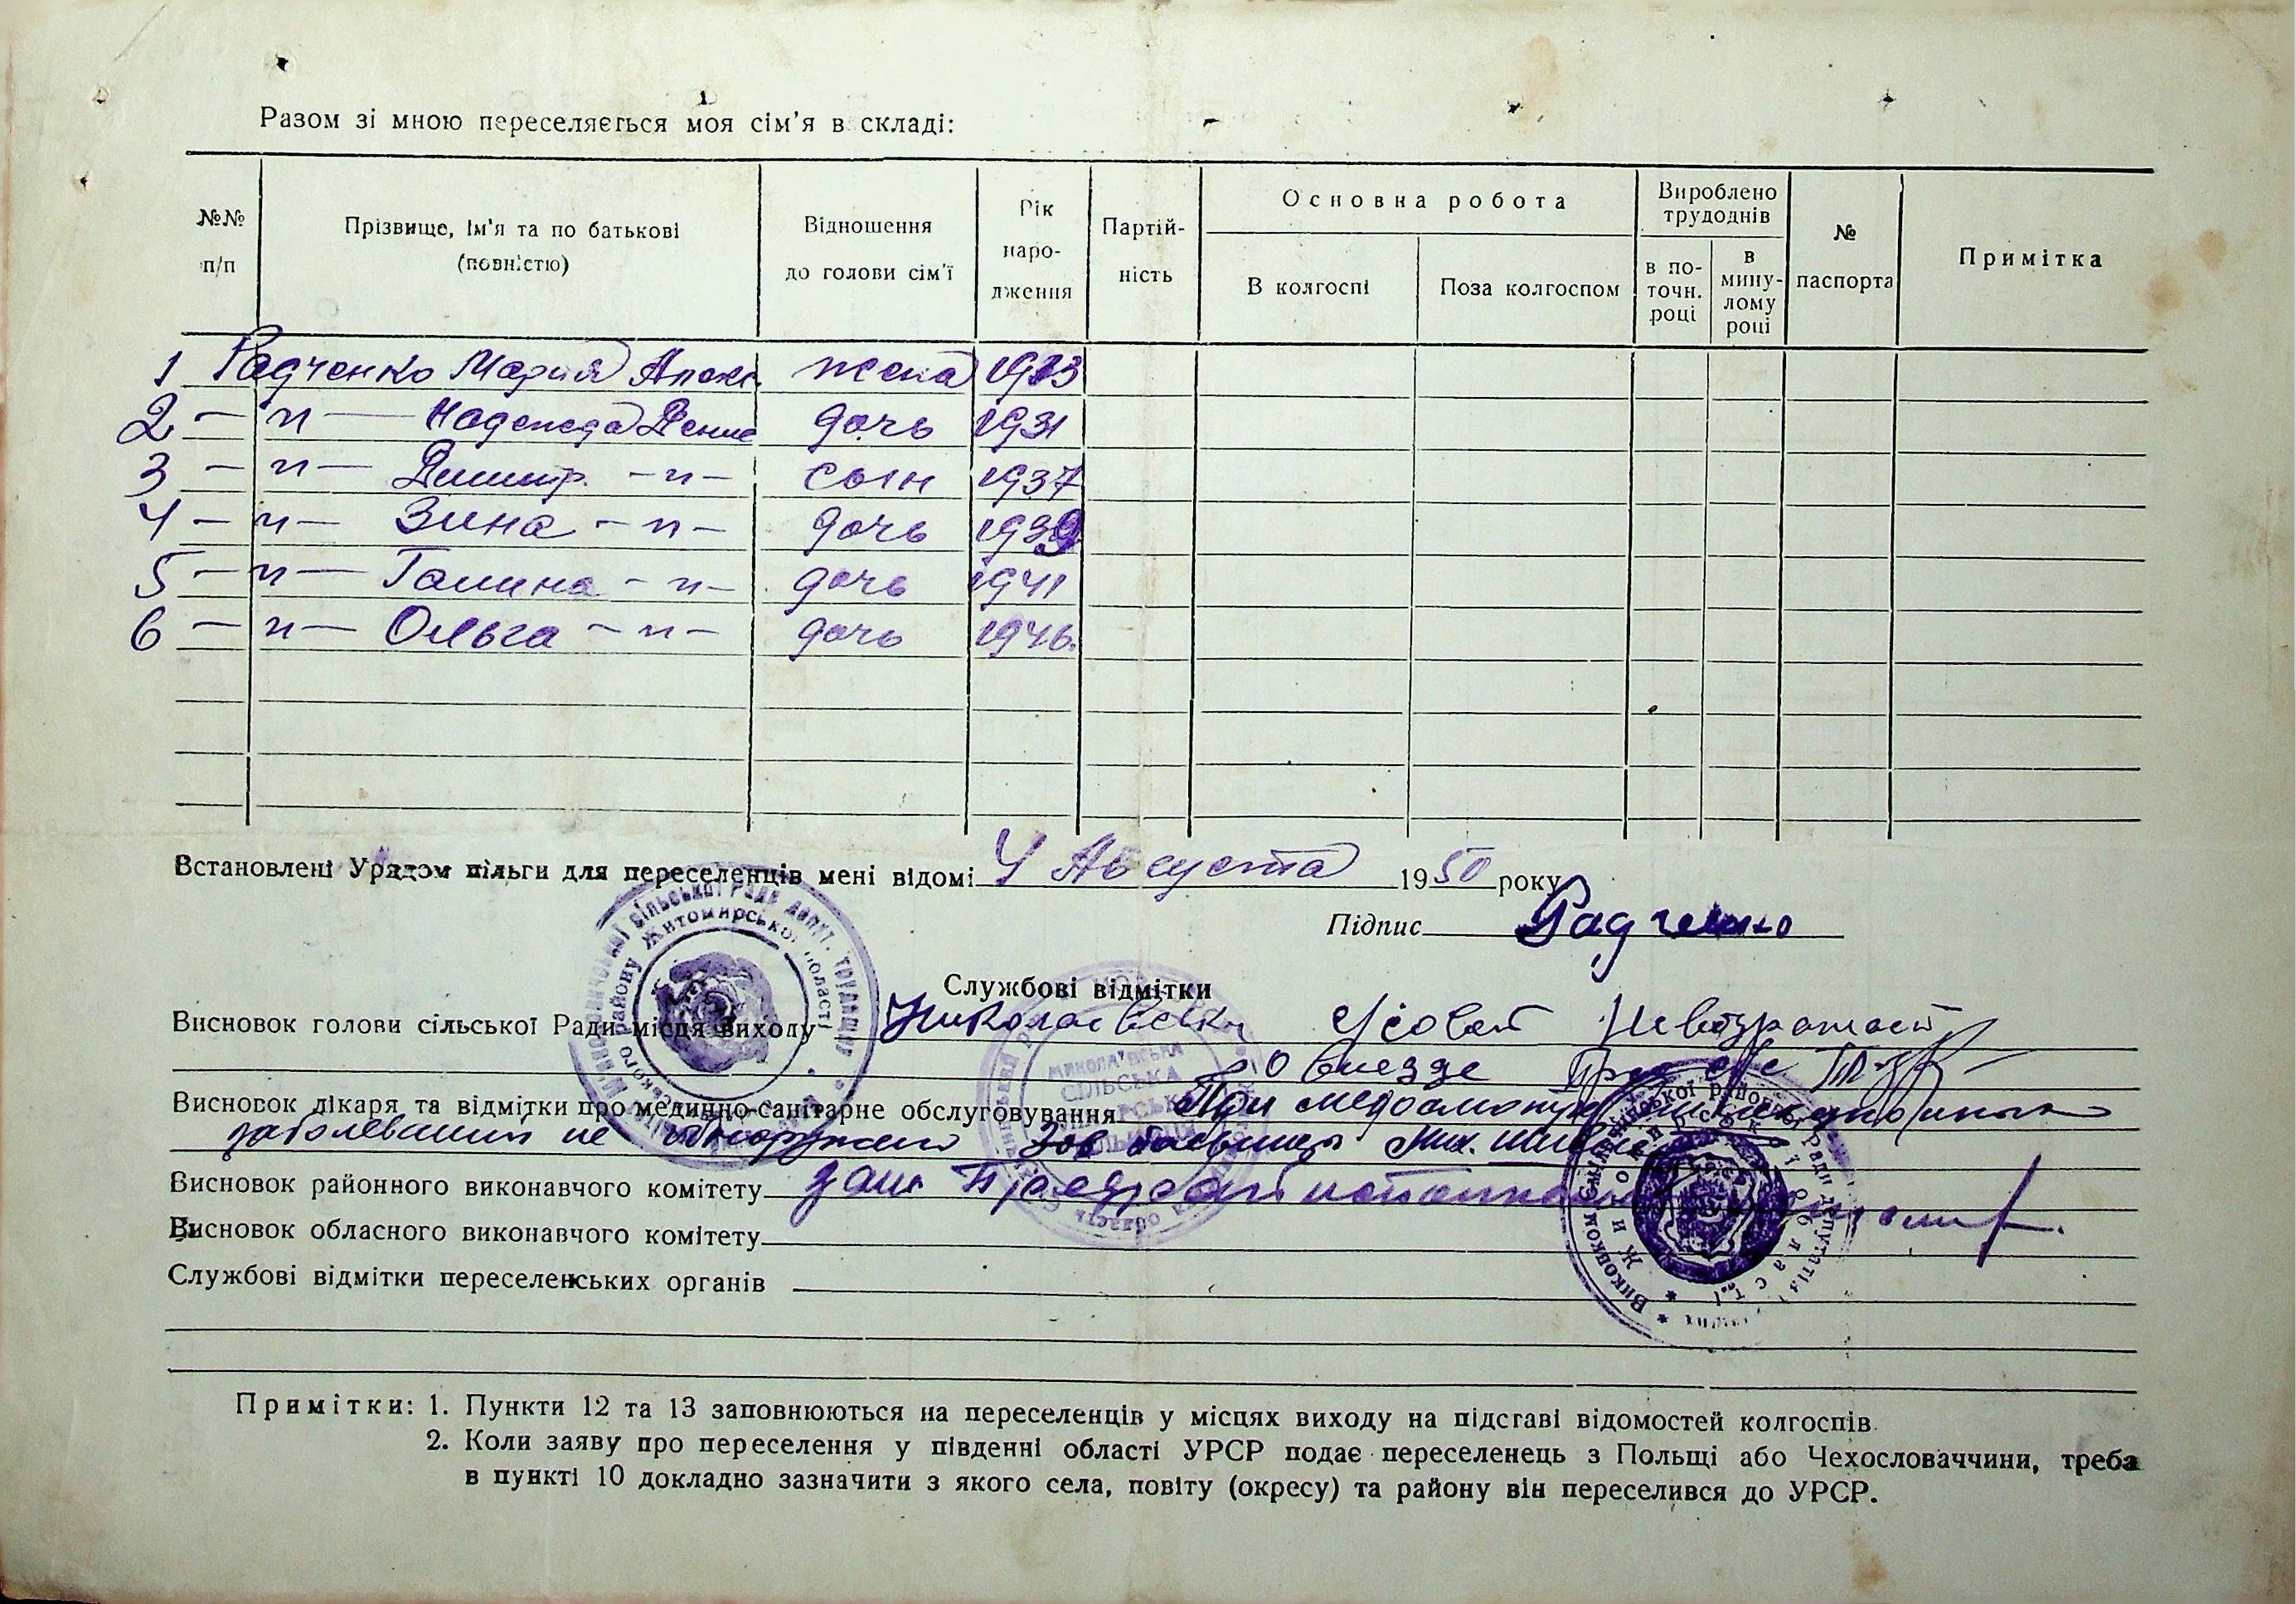 Разом зі мною переселяється моя сім'я в складі:
№№ п/п
Прізвище, ім'я та по батькові (повністю)
Відношення до голови сім'ї
Рік народження
Партійність
Основна робота
В колгоспі
Поза колгоспом
Вироблено трудоднів
в поточн. році
в минулому році
№ паспорта
Примітка
1 Радченко Мария жена 1913
2 — " — Надежда дочь 1931
3 — " — Димитр. — " — сын 1937
4 — " — Зина — " — дочь 1939
5 — " — Галина — " — дочь 1941
6 — " — Ольга — " — дочь 1946.
Встановлені Урядом пільги для переселенців мені відомі 4 Августа 1950 року
Підпис Радченко
Службові відмітки
Висновок голови сільської Ради місця виходу Николаевский с/совет не возражает
о выезде
Висновок лікаря та відмітки про медично-санітарне обслуговування При медосмотре
заболеваний не обнаружено
Висновок районного виконавчого комітету
Висновок обласного виконавчого комітету
Службові відмітки переселенських органів
Примітки: 1. Пункти 12 та 13 заповнюються на переселенців у місцях виходу на підставі відомостей колгоспів.
2. Коли заяву про переселення у південні області УРСР подає переселенець з Польщі або Чехословаччини, треба
в пункті 10 докладно зазначити з якого села, повіту (окресу) та району він переселився до УРСР.